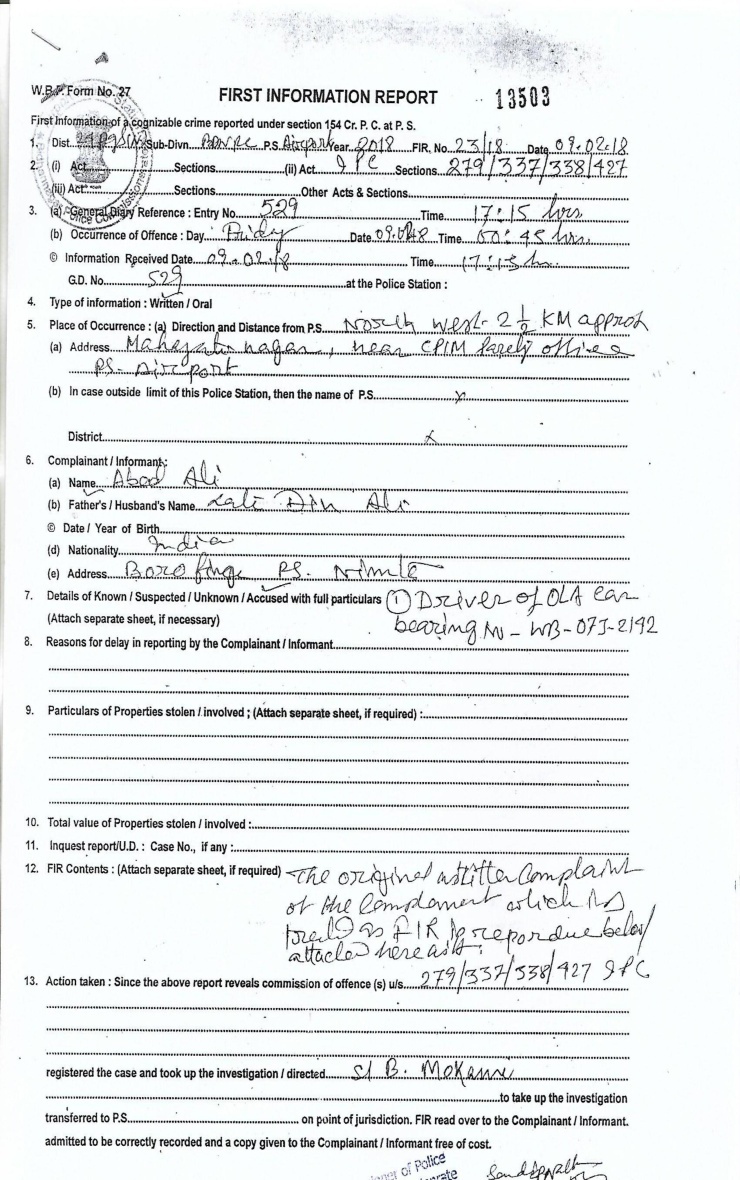 W.B.P. Form No. 27
FIRST INFORMATION REPORT
13503
First Information of a cognizable crime reported under section 154 Cr. P. C. at P. S.
1. Dist. Sub-Divn. P.S. Airport Year 2018 FIR, No. 23/18 Date 09.02.18
2. (i) Act Sections (ii) Act IPC Sections 279/337/338/427
(iii) Act Sections Other Acts & Sections
3. (a) General Diary Reference : Entry No. 529 Time 17:15 hrs
(b) Occurrence of Offence : Day Friday Date Time 45 hrs.
© Information Received Date 09.02.18 Time 17:15 hr.
G.D. No. 529 at the Police Station :
4. Type of information : Written / Oral
5. Place of Occurrence : (a) Direction and Distance from P.S. North West - 2 1/2 KM approx
(a) Address nagar, near CPIM Party office
PS. Airport
(b) In case outside limit of this Police Station, then the name of P.S. x
District x
6. Complainant / Informant:
(a) Name Abod Ali
(b) Father's / Husband's Name Late Din Ali
© Date / Year of Birth
(d) Nationality India
(e) Address PS. Nimta
7. Details of Known / Suspected / Unknown / Accused with full particulars (1) Driver of OLA car
(Attach separate sheet, if necessary) bearing No - WB-07J-2192
8. Reasons for delay in reporting by the Complainant / Informant
9. Particulars of Properties stolen / involved ; (Attach separate sheet, if required) :
10. Total value of Properties stolen / involved :
11. Inquest report/U.D. : Case No., if any :
12. FIR Contents : (Attach separate sheet, if required) The original written Complaint
of the Complainant which is
treated as FIR is reporduce below
attached here as
13. Action taken : Since the above report reveals commission of offence (s) u/s. 279/337/338/427 IPC
registered the case and took up the investigation / directed SI B.
to take up the investigation
transferred to P.S. on point of jurisdiction. FIR read over to the Complainant / Informant.
admitted to be correctly recorded and a copy given to the Complainant / Informant free of cost.
of Police